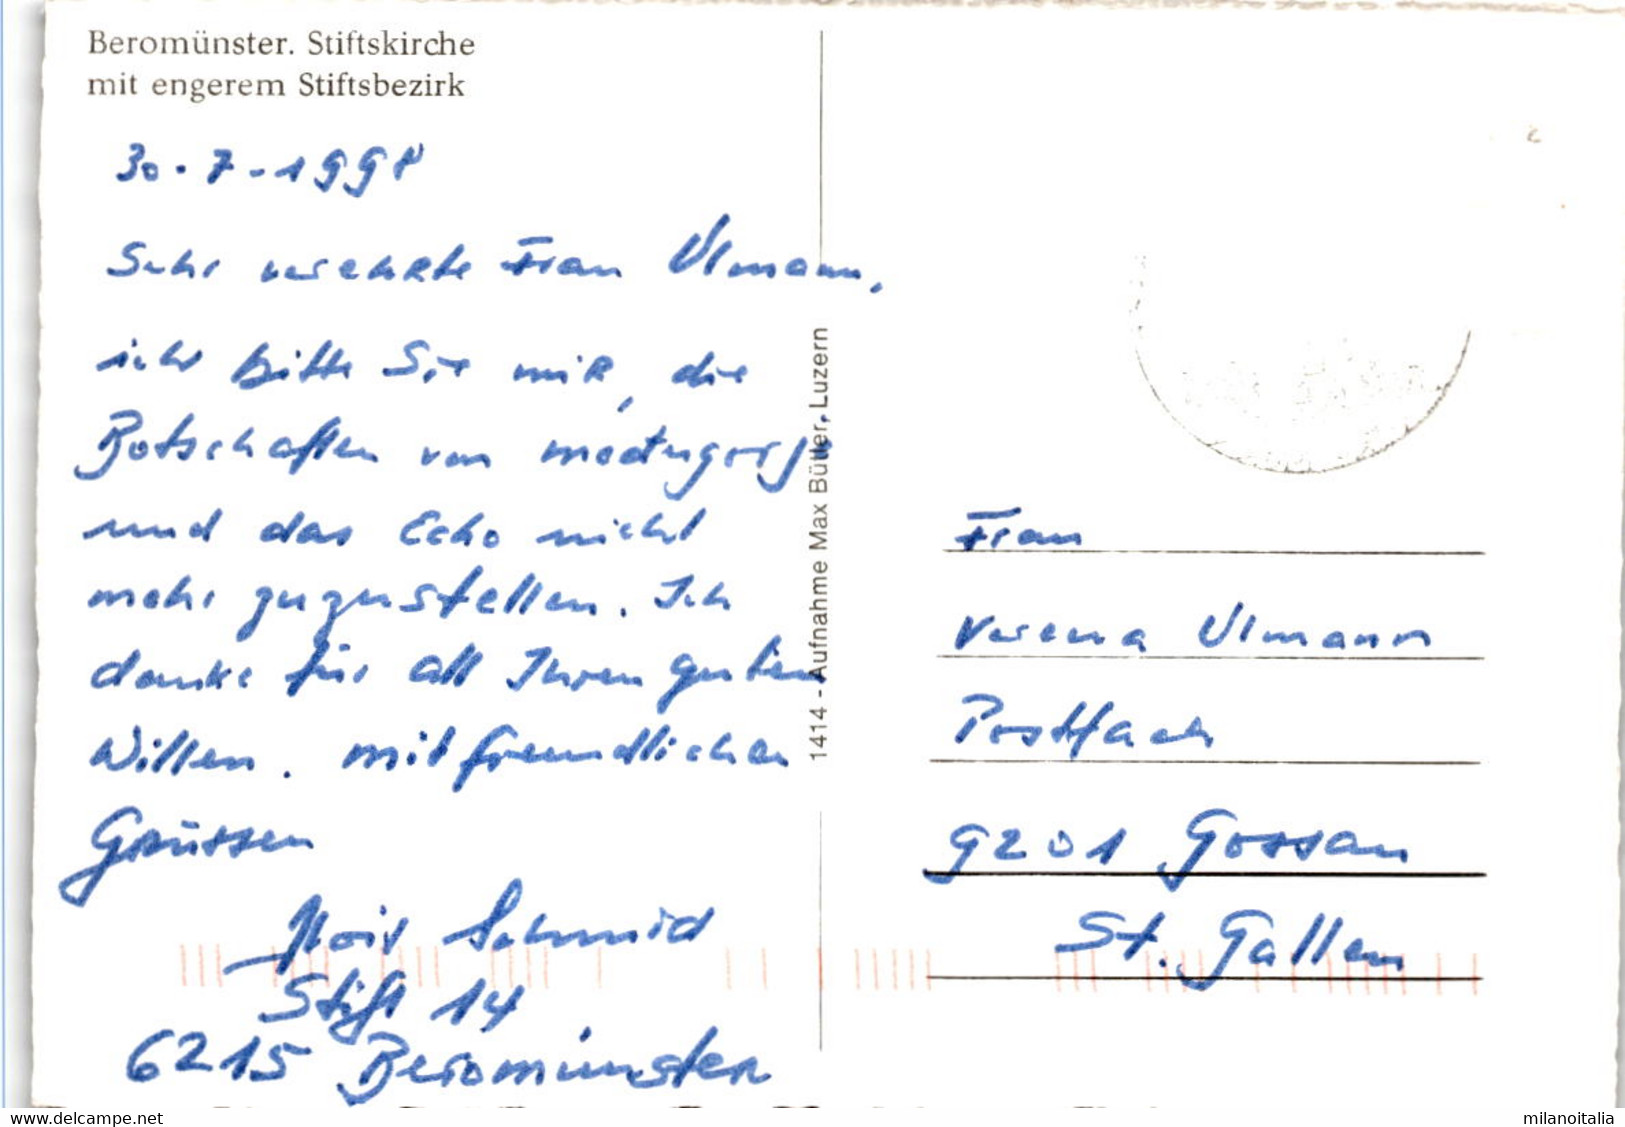 Beromünster. Stiftskirche
mit engerem Stiftsbezirk
30.7.1998
Sehr verehrte Frau Ulmann,
ich bitte Sie mir, die
Botschaften von
und das Echo nicht
mehr zuzustellen. Ich
danke für all Ihren guten
Willen. mit freundlichen
Grüssen
Schmid
Stift 14
6215 Beromünster
1414 - Aufnahme Max Bütler, Luzern
Frau
Verena Ulmann
Postfach
9201 Gossau
St. Gallen
www.delcampe.net
milanoitalia